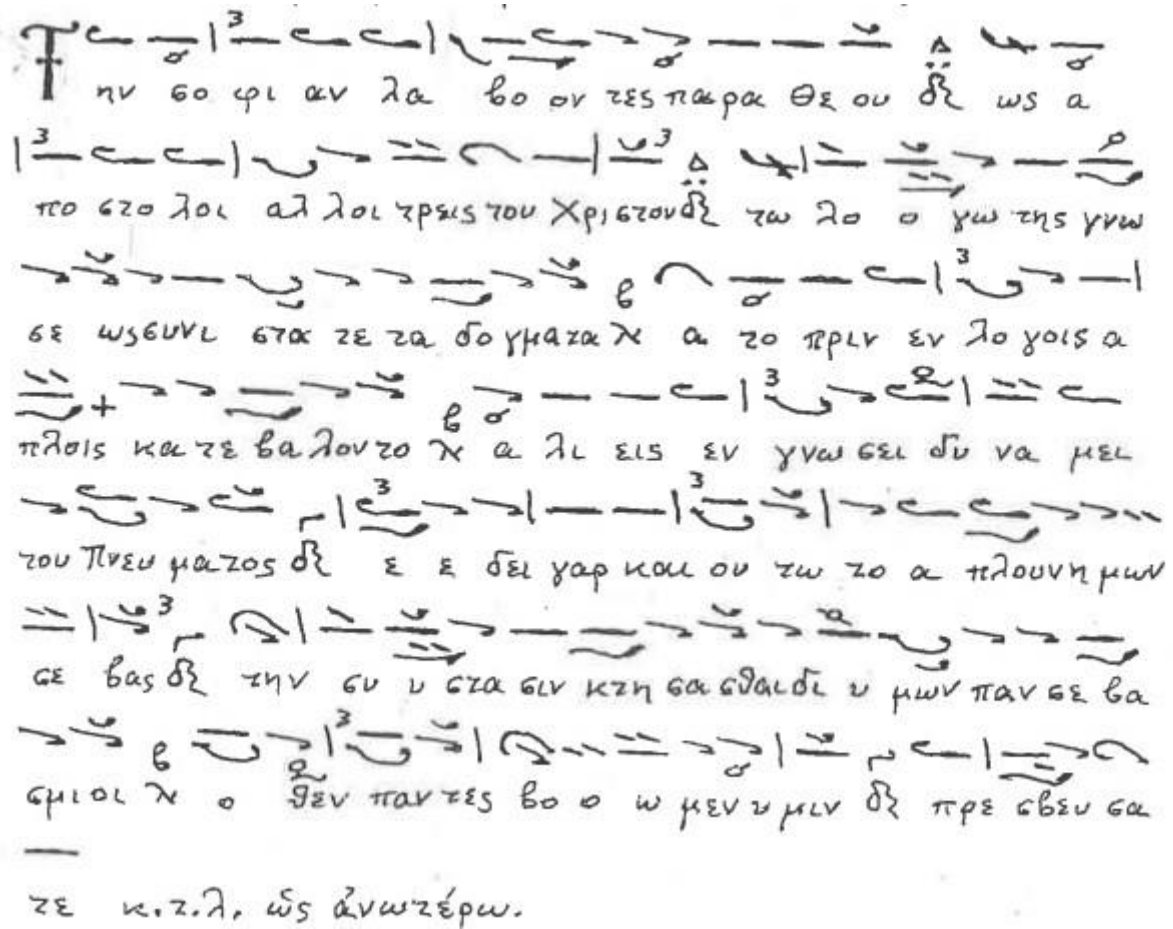 Την σο φι αν λα βο ον τες παρα Θε ου δι ως α
πο στο λοι αλ λοι τρεις του Χρι στου δι τω λο ο γω της γνω
σε ως συνι στα τε τα δο γματα λ α το πριν εν λο γοις α
πλοις κα τε βα λοντο λ α λι εις εν γνω σει δυ να μει
του Πνευ ματος δι ε ε δει γαρ και ου τω το α πλουν η μων
σε βας δι την συ υ στα σιν κτη σα σθαι δι υ μων παν σε βα
σμιοι λ ο θεν παντες βο ο ω μεν υ μιν δι πρε σβευ σα
τε κ.τ.λ. ὡς ἀνωτέρω.